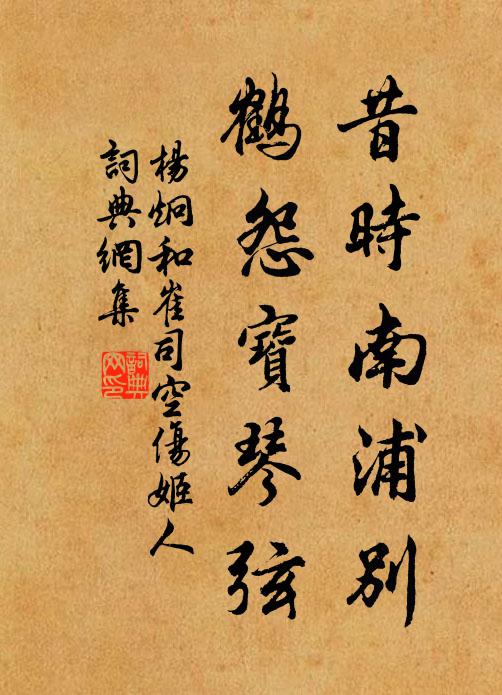 昔時南浦別
鶴怨寶琴弦
楊炯和崔司空傷姬人
詞典網集
詞典
网印